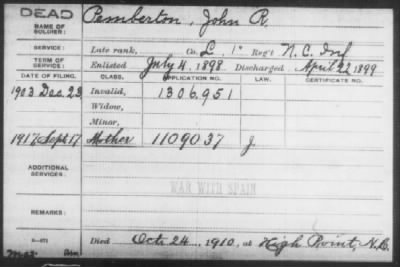 DEAD
NAME OF SOLDIER: Pemberton, John R.
SERVICE: Late rank, Co. L, 1st Reg't N.C. Inf
TERM OF SERVICE: Enlisted July 4, 1898 Discharged April 22 1899
DATE OF FILING. CLASS. APPLICATION NO. LAW. CERTIFICATE NO.
1903 Dec. 23 Invalid, 1306.951
Widow,
Minor,
1917 Sept 17 Mother 1109037 J.
ADDITIONAL SERVICES:
WAR WITH SPAIN
REMARKS:
Died Oct. 24, 1910, at High Point, N.C.